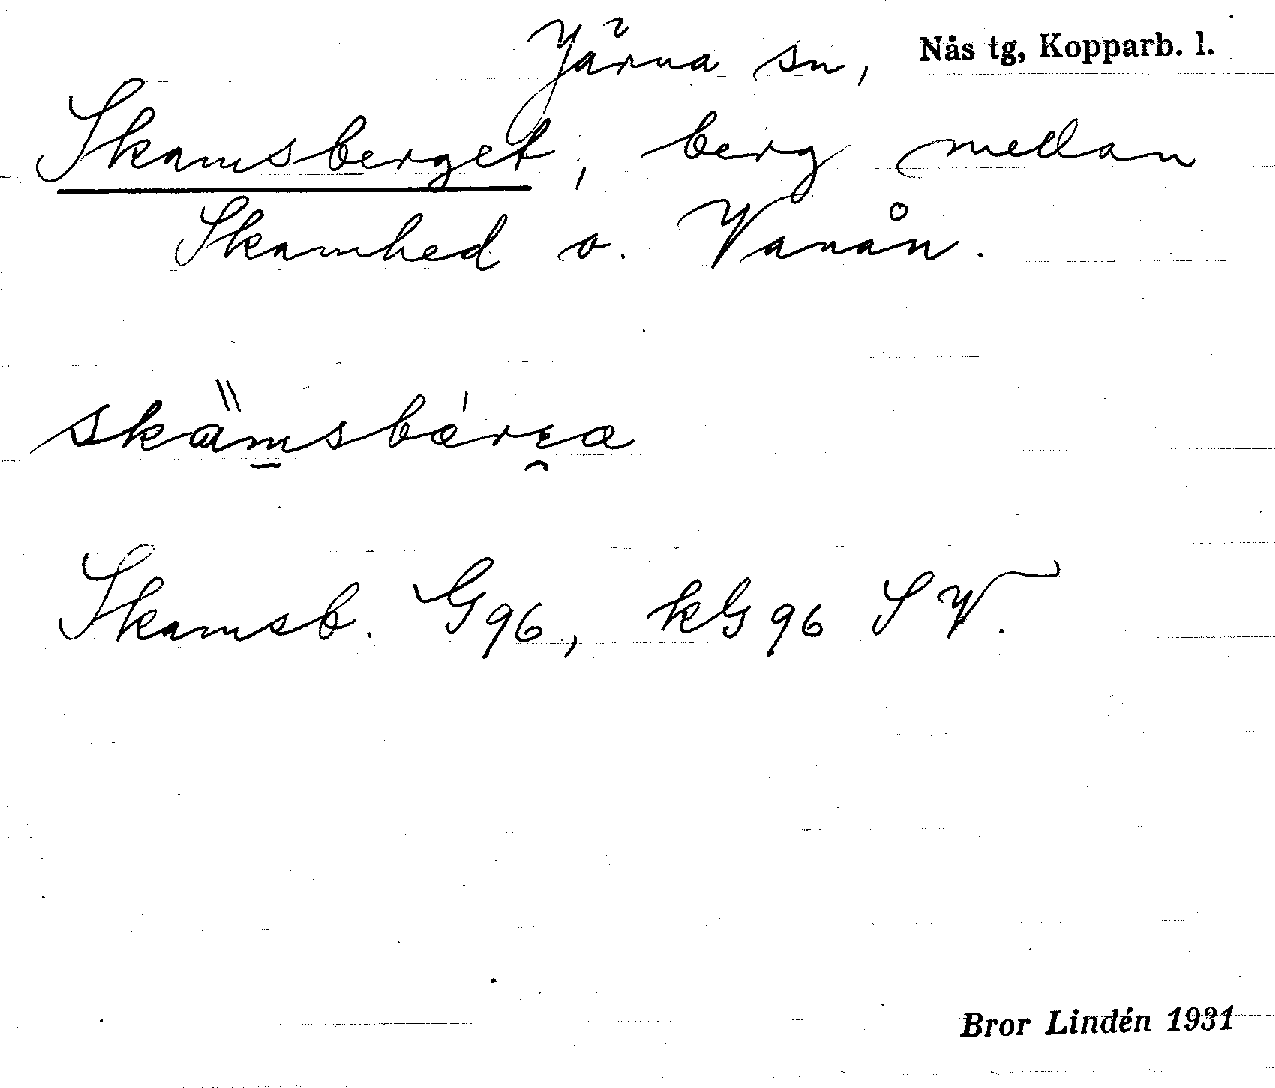 Järna sn, Nås tg, Kopparb. l.
Skamsberget, berg mellan
Skamhed o. Vanån.
Skamsb. G96, kG96 SV.
Bror Lindén 1931